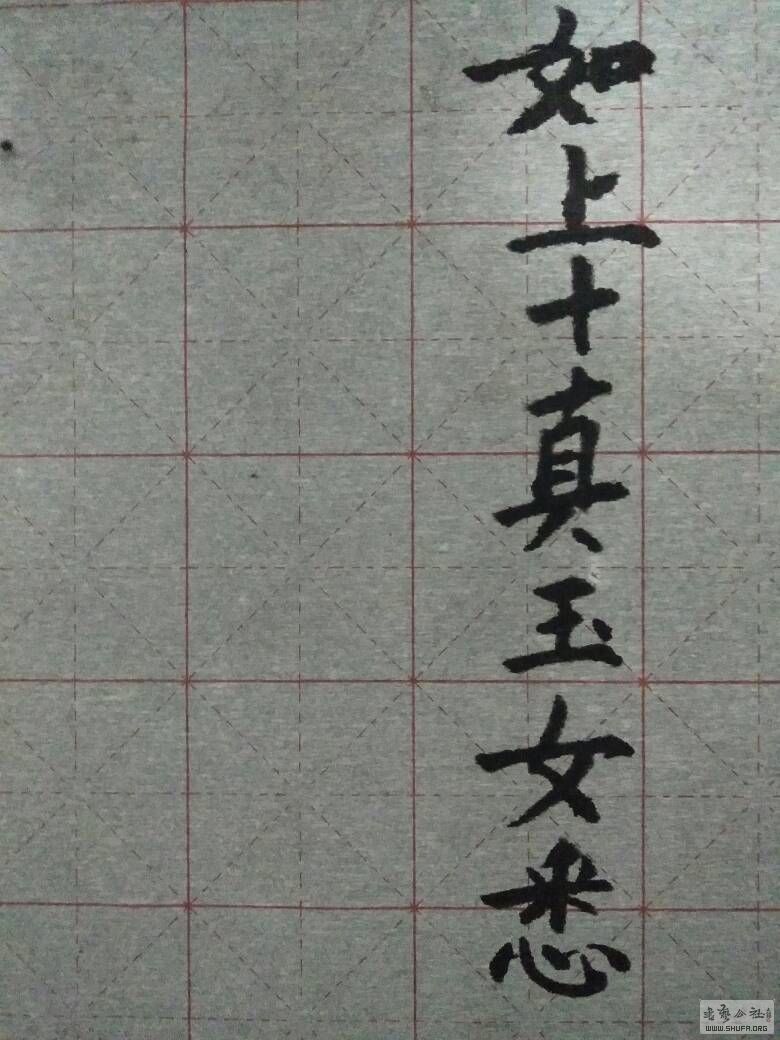 如上十真玉女悉
WWW.SHUFA.ORG